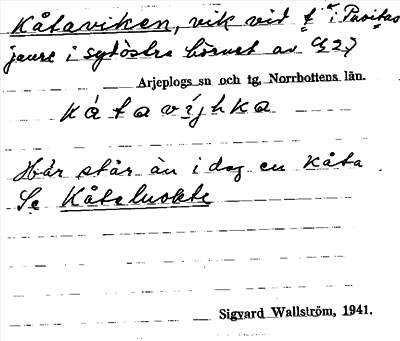 Kåtaviken, vik vid t i Pasitas
jaure i sydöstra hörnet av G 27
Arjeplogs sn och tg, Norrbottens län.
kátavijhka
Här står än i dag en kåta
Se Kåtaluokte
Sigvard Wallström, 1941.